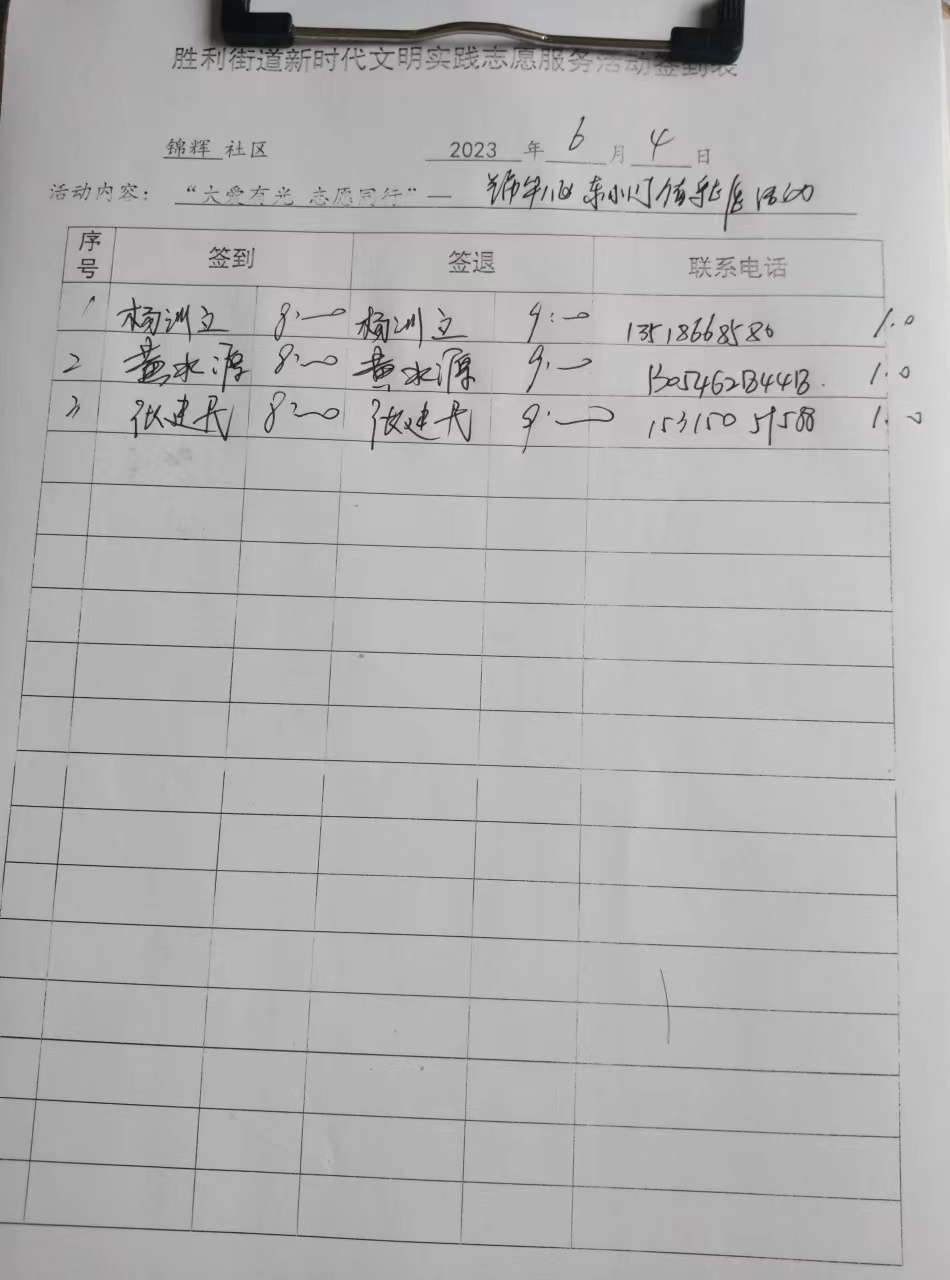 胜利街道新时代文明实践志愿服务活动签到表
锦辉 社区 2023 年 6 月 4 日
活动内容： “大爱有光 志愿同行”— 东小门值 活动
序号 签到 签退 联系电话
1 杨训立 8:00 杨训立 9:00 13518668580 1.0
2 黄水源 8:00 黄水源 9:00 1.0
3 张建民 8:00 张建民 9:00 1.0